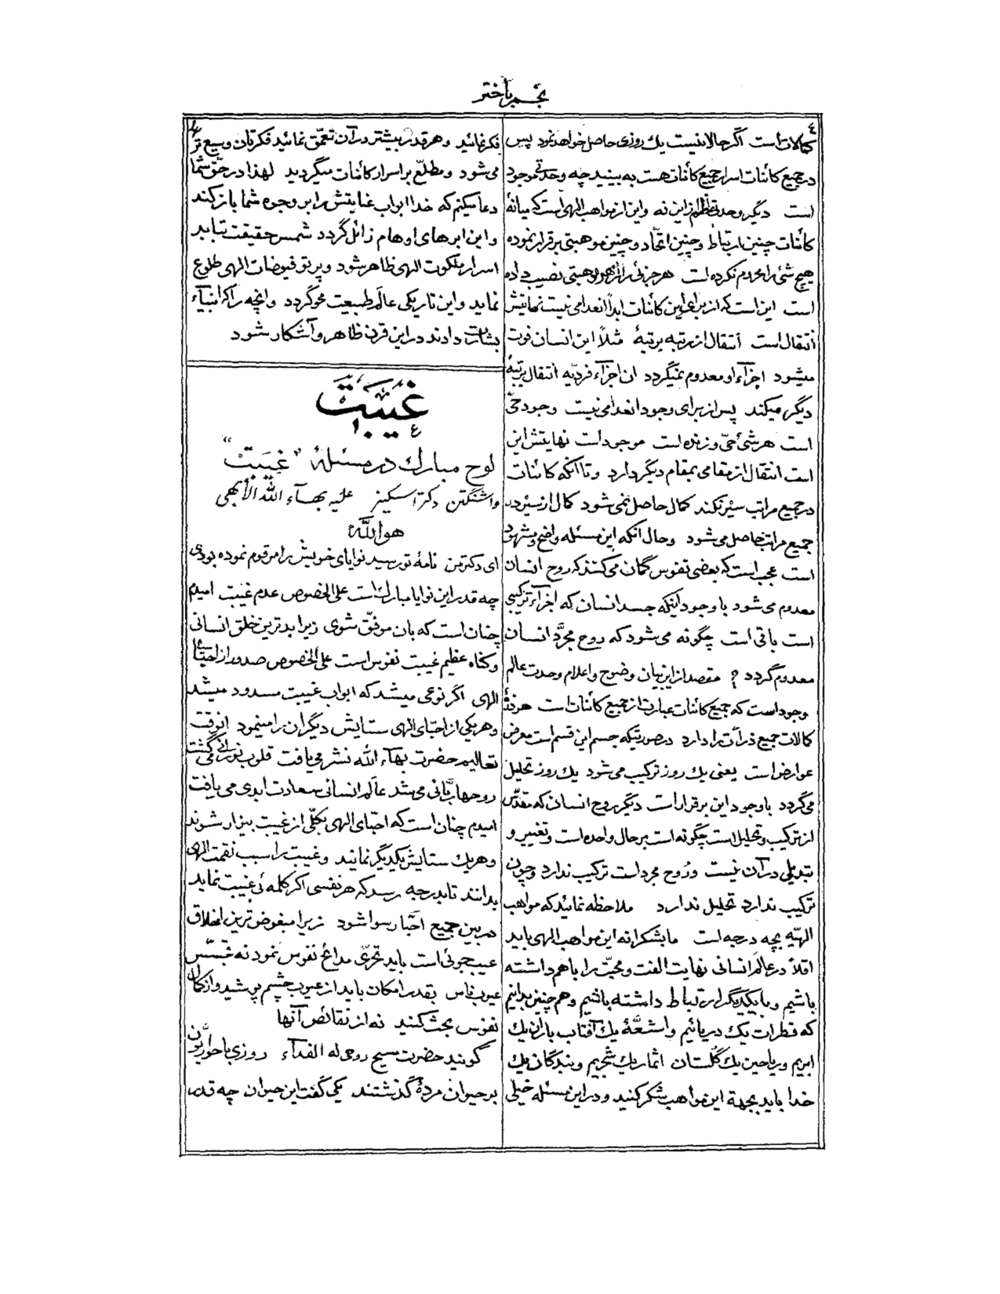 نجم باختر
٤
کمالات است اگر حالا نیست یک روزی حاصل خواهد نمود پس
در جمیع کائنات اسرار جمیع کائنات هست به بینید چه وحدتی موجود
است دیگر وحدتی اعظم از این نه و این از مواهب الهی است که میانهٔ
کائنات چنین ارتباط و چنین اتّحاد و چنین موهبتی برقرار نموده
هیچ شئی را محروم نکرده است هر جزئی را از هر موهبتی نصیب داده
است این است که از برای این کائنات ابداً انعدامی نیست نهایتش
انتقال است انتقال از رتبه برتبهٔ مثلاً این انسان فوت
میشود اجزآء او معدوم نمیگردد ان اجزآء فردیّه انتقال برتبهٔ
دیگر میکند پس از برای وجود انعدامی نیست وجود حیّ
است هر شئی حیّ و زنده است موجود است نهایتش این
است انتقال از مقامی بمقام دیگر دارد و تا آنکه کائنات
در جمیع مراتب سیر نکند کمال حاصل نمی شود کمال از سیر در
جمیع مراتب حاصل می شود و حال آنکه این مسئله واضح و مشهود
است عجب است که بعضی نفوس گمان می کنند که روح انسان
معدوم می شود با وجود اینکه جسد انسان که اجزآء ترکیبی
است باقی است چگونه می شود که روح مجرّد انسان
معدوم گردد ؟ مقصد از این بیان وضوح و اعلام وحدت عالم
وجود است که جمیع کائنات عبارت از جمیع کائنات است هر ذرّهٔ
کمالات جمیع ذرّات را دارد در صورتیکه جسم این قسم است معرض
عوارض است یعنی یک روز ترکیب می شود یک روز تحلیل
می گردد با وجود این برقرار است دیگر روح انسان که مقدّس
از ترکیب و تحلیل است چگونه است بر حال واحده است و تغییر و
تبدیلی در آن نیست و روح مجرد است ترکیب ندارد و چون
ترکیب ندارد تحلیل ندارد ملاحظه نمائید که مواهب
الهیّه بچه درجه است ما بشکرانه این مواهب الهی باید
اقلاً در عالم انسانی نهایت الفت و محبّت را با هم داشته
باشیم و با یکدیگر ارتباط داشته باشیم و هم چنین بدانیم
که قطرات یک دریائیم و اشعّهٔ یک آفتاب باران یک
ابریم و ریاحین یک گلستان اثمار یک شجریم و بندگان یک
خدا باید بجهة این مواهب شکر کنید و در این مسئله خیلی
فکر نمائید و هر قدر بیشتر در آن تعمّق نمائید فکرتان وسیع تر
می شود و مطلّع بر اسرار کائنات میگردید لهذا در حقّ شما
دعا میکنم که خدا ابواب عنایتش را بر وجوه شما باز کند
و این ابرهای اوهام زائل گردد شمس حقیقت بتابد
اسرار ملکوت الهی ظاهر شود و پرتو فیوضات الهی طلوع
نماید و این تاریکی عالم طبیعت محو گردد و آنچه را که انبیآء
بشارت دادند در این قرن ظاهر و آشکار شود
غیبت
ع
لوح مبارک در مسئلهٔ "غیبت"
واشنگتن دکتر اسکینز علیه بهآء الله الأبهی
هو الله
ای دکتر من نامهٔ تو رسید نوایای خویش را مرقوم نموده بودی
چه قدر این نوایا مبارک است علی الخصوص عدم غیبت امیدم
چنان است که بآن موفّق شوی زیرا بدترین خلق انسانی
و گناه عظیم غیبت نفوس است علی الخصوص صدور از احبّای
الهی اگر نوعی میشد که ابواب غیبت مسدود میشد
و هر یکی از احبای الهی ستایش دیگران را مینمود آنوقت
تعالیم حضرت بهآء الله نشر می یافت قلوب نورانی می گشت
روحها ربّانی می شد عالم انسانی سعادت ابدی می یافت
امیدم چنان است که احبّای الهی بکلّی از غیبت بیزار شوند
و هر یک ستایش یکدیگر نمایند و غیبت را سبب نقمت الهی
بدانند تا بدرجه رسد که هر نفسی اگر کلمه ئی غیبت نماید
در بین جمیع احبّا رسوا شود زیرا مبغوض ترین اخلاق
عیب جوئی است باید تحرّی مدائح نفوس نمود نه تجسّس
عیوب ناس بقدر امکان باید از عیوب چشم پوشید و از کمالات
نفوس بحث کنید نه از نقائص آنها
گویند حضرت مسیح روحی له الفدآء روزی با حواریّون
بر حیوان مردهٔ گذشتند یکی گفت این حیوان چه قدر